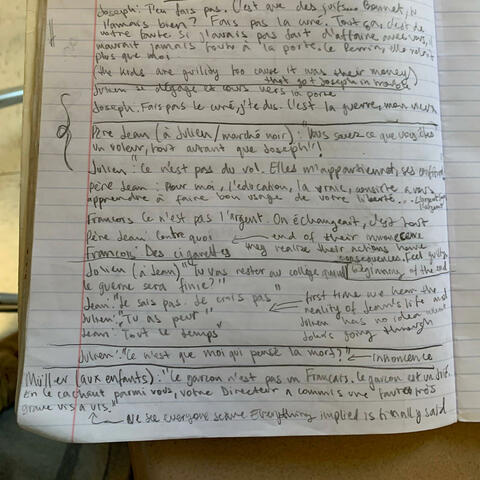 Joseph: T'en fais pas. C'est que des juifs... Bonnet, tu
l'aimais bien? Fais pas la curé. Tout ça, c'est de
votre faute. Si j'avais pas fait d'affaire avec vous, il
m'aurait jamais foutu à la porte. Le Perrin, elle volait
plus que moi
(the kids are guility too cause it was their money)
that got Joseph in trouble
Julien se dégage et cours vers la porte
Joseph: Fais pas le curé, j'te dis. C'est la guerre, mon vieux
Père Jean (à Julien/marché noir): "Vous savez ce que vous êtes
un voleur, tout autant que Joseph"!
Julien: "Ce n'est pas du vol. Elles m'appartiennent, ses confitures
père Jean: Pour moi, l'education, la vraie, consiste à vous
apprendre à faire bon usage de votre liberté...
François Ce n'est pas l'argent. On échangeait, c'est tout
Père Jean: Contre quoi ← end of their innocence
François: Des cigarettes they realize their actions have
consequences. Feel guilty
Julien (à Jean) "Tu vas rester au collège quand beginning of the end
le guerre sera finie?"
Jean: "Je sais pas. Je crois pas" ← first time we hear the
Julien: "Tu as peur" reality of Jean's life and
Jean: Tout le temps" Julien has no idea what
Jews going through
Julien: "Ce n'est que moi qui pense la mort?" ← innoncence
Müller (aux enfants): "Ce garçon n'est pas un Français. Ce garçon est un Juif.
En le cachant parmi vous, votre Directeur a commis une faute très
grave vis à vis"
we see everyone scene Everything implied is finally said